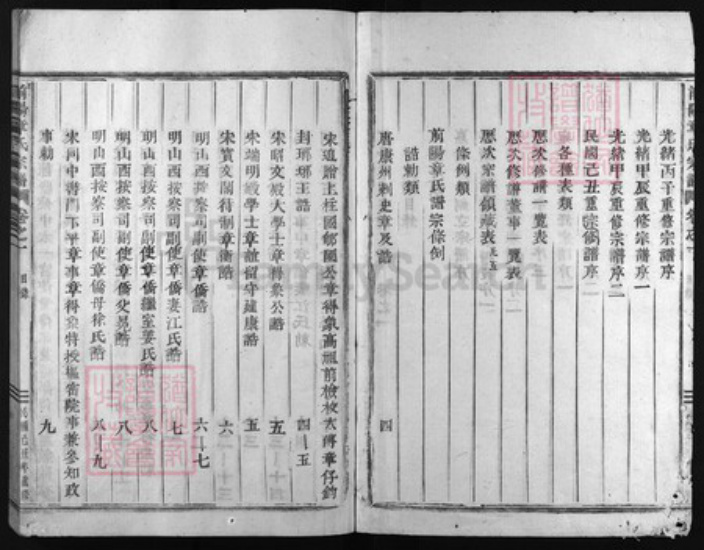 光緒丙子重修宗譜序
光緒甲辰重修宗譜序一
光緒甲辰重修宗譜序二
民國己丑重宗修譜序
各種表類
歷次修譜一覽表
歷次修譜董事一覽表
歷次宗譜領藏表
條例類
前陽章氏譜宗條例
誥勅類
唐康州刺史章及誥 四
宋追贈上柱國郇國公章得象高祖前檢校太傅章仔鈞
封瑯琊王誥 四－五
宋昭文殿大學士章得象公誥 五
宋端明殿學士章誼留守建康誥 五
宋寶文閣待制章衡誥 六
明山西按察司副使章僑誥 六－七
明山西按察司副使章僑妻江氏誥 七
明山西按察司副使章僑繼室姜氏誥 八
明山西按察司副使章僑父誥 八
明山西按察司副使章僑母徐氏誥 八－九
宋同中書門下平章事章得象特授樞密院事兼參知政
事勅 九
章氏宗譜
目錄
FamilySearch